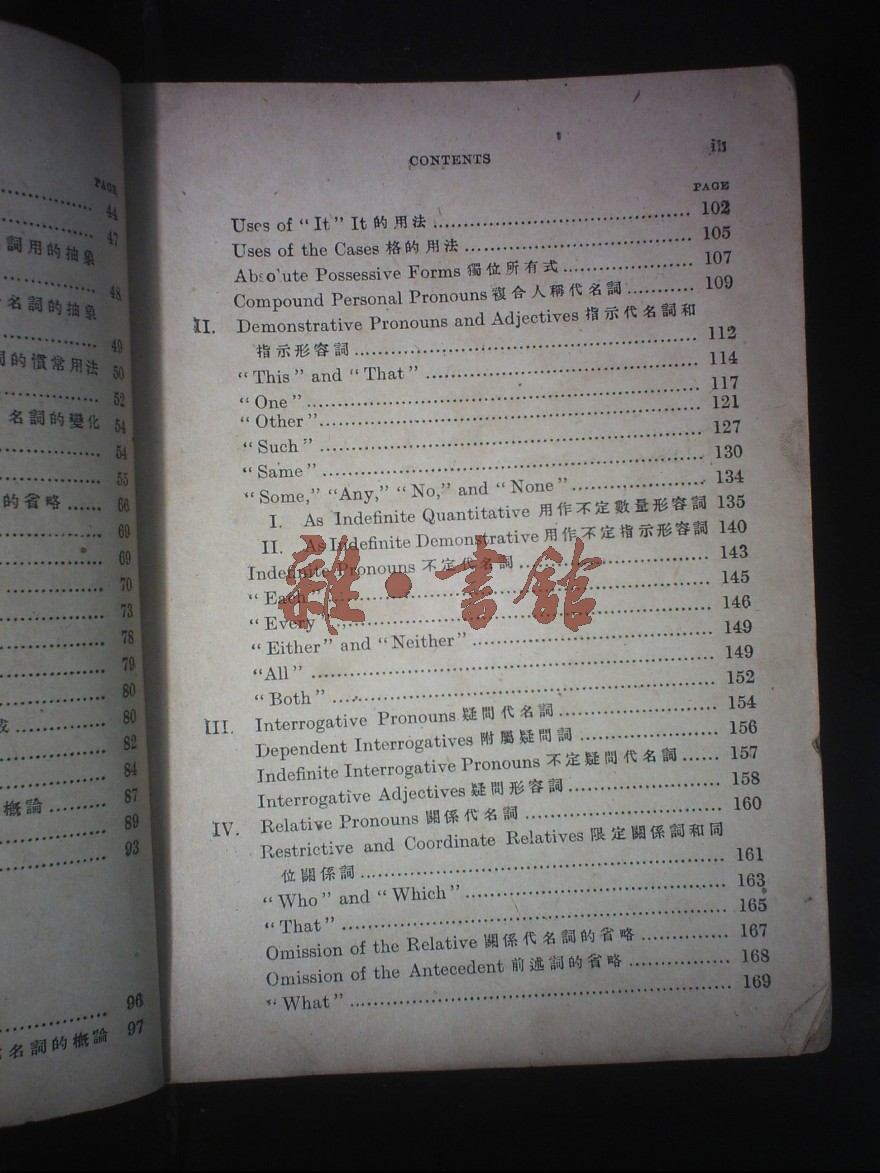 PAGE
44
47
詞用的抽象
48
名詞的抽象
49
的慣常用法 50
52
名詞的變化 54
54
55
的省略 ...... 66
69
69
70
73
78
79
80
............... 80
82
84
概論 ......... 87
89
93
96
名詞的概論 97
CONTENTS iii
PAGE
Uses of "It" It 的用法 ........................ 102
Uses of the Cases 格的用法 ........................ 105
Absolute Possessive Forms 獨位所有式 ............... 107
Compound Personal Pronouns 複合人稱代名詞 .......... 109
II. Demonstrative Pronouns and Adjectives 指示代名詞和
指示形容詞 ........................ 112
"This" and "That" ........................ 114
"One" ........................ 117
"Other" ........................ 121
"Such" ........................ 127
"Same" ........................ 130
"Some," "Any," "No," and "None" ............... 134
I. As Indefinite Quantitative 用作不定數量形容詞 135
II. As Indefinite Demonstrative 用作不定指示形容詞 140
Indefinite Pronouns 不定代名詞 ............... 143
"Each" ........................ 145
"Every" ........................ 146
"Either" and "Neither" ........................ 149
"All" ........................ 149
"Both" ........................ 152
III. Interrogative Pronouns 疑問代名詞 ............... 154
Dependent Interrogatives 附屬疑問詞 ............... 156
Indefinite Interrogative Pronouns 不定疑問代名詞 ...... 157
Interrogative Adjectives 疑問形容詞 ............... 158
IV. Relative Pronouns 關係代名詞 ............... 160
Restrictive and Coordinate Relatives 限定關係詞和同
位關係詞 ........................ 161
"Who" and "Which" ........................ 163
"That" ........................ 165
Omission of the Relative 關係代名詞的省略 ............ 167
Omission of the Antecedent 前述詞的省略 ............ 168
"What" ........................ 169
雜·書館